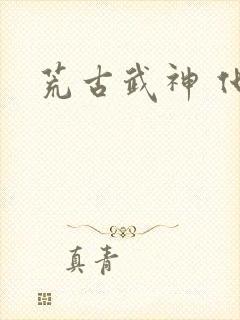 荒古武神
真青